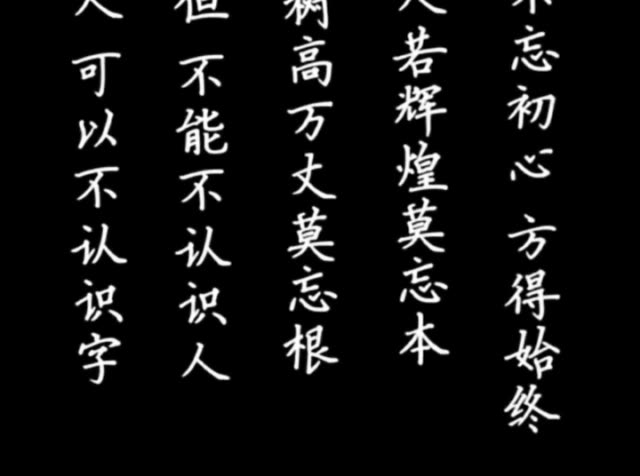 人可以不认识字
但不能不认识人
树高万丈莫忘根
人若辉煌莫忘本
不忘初心 方得始终